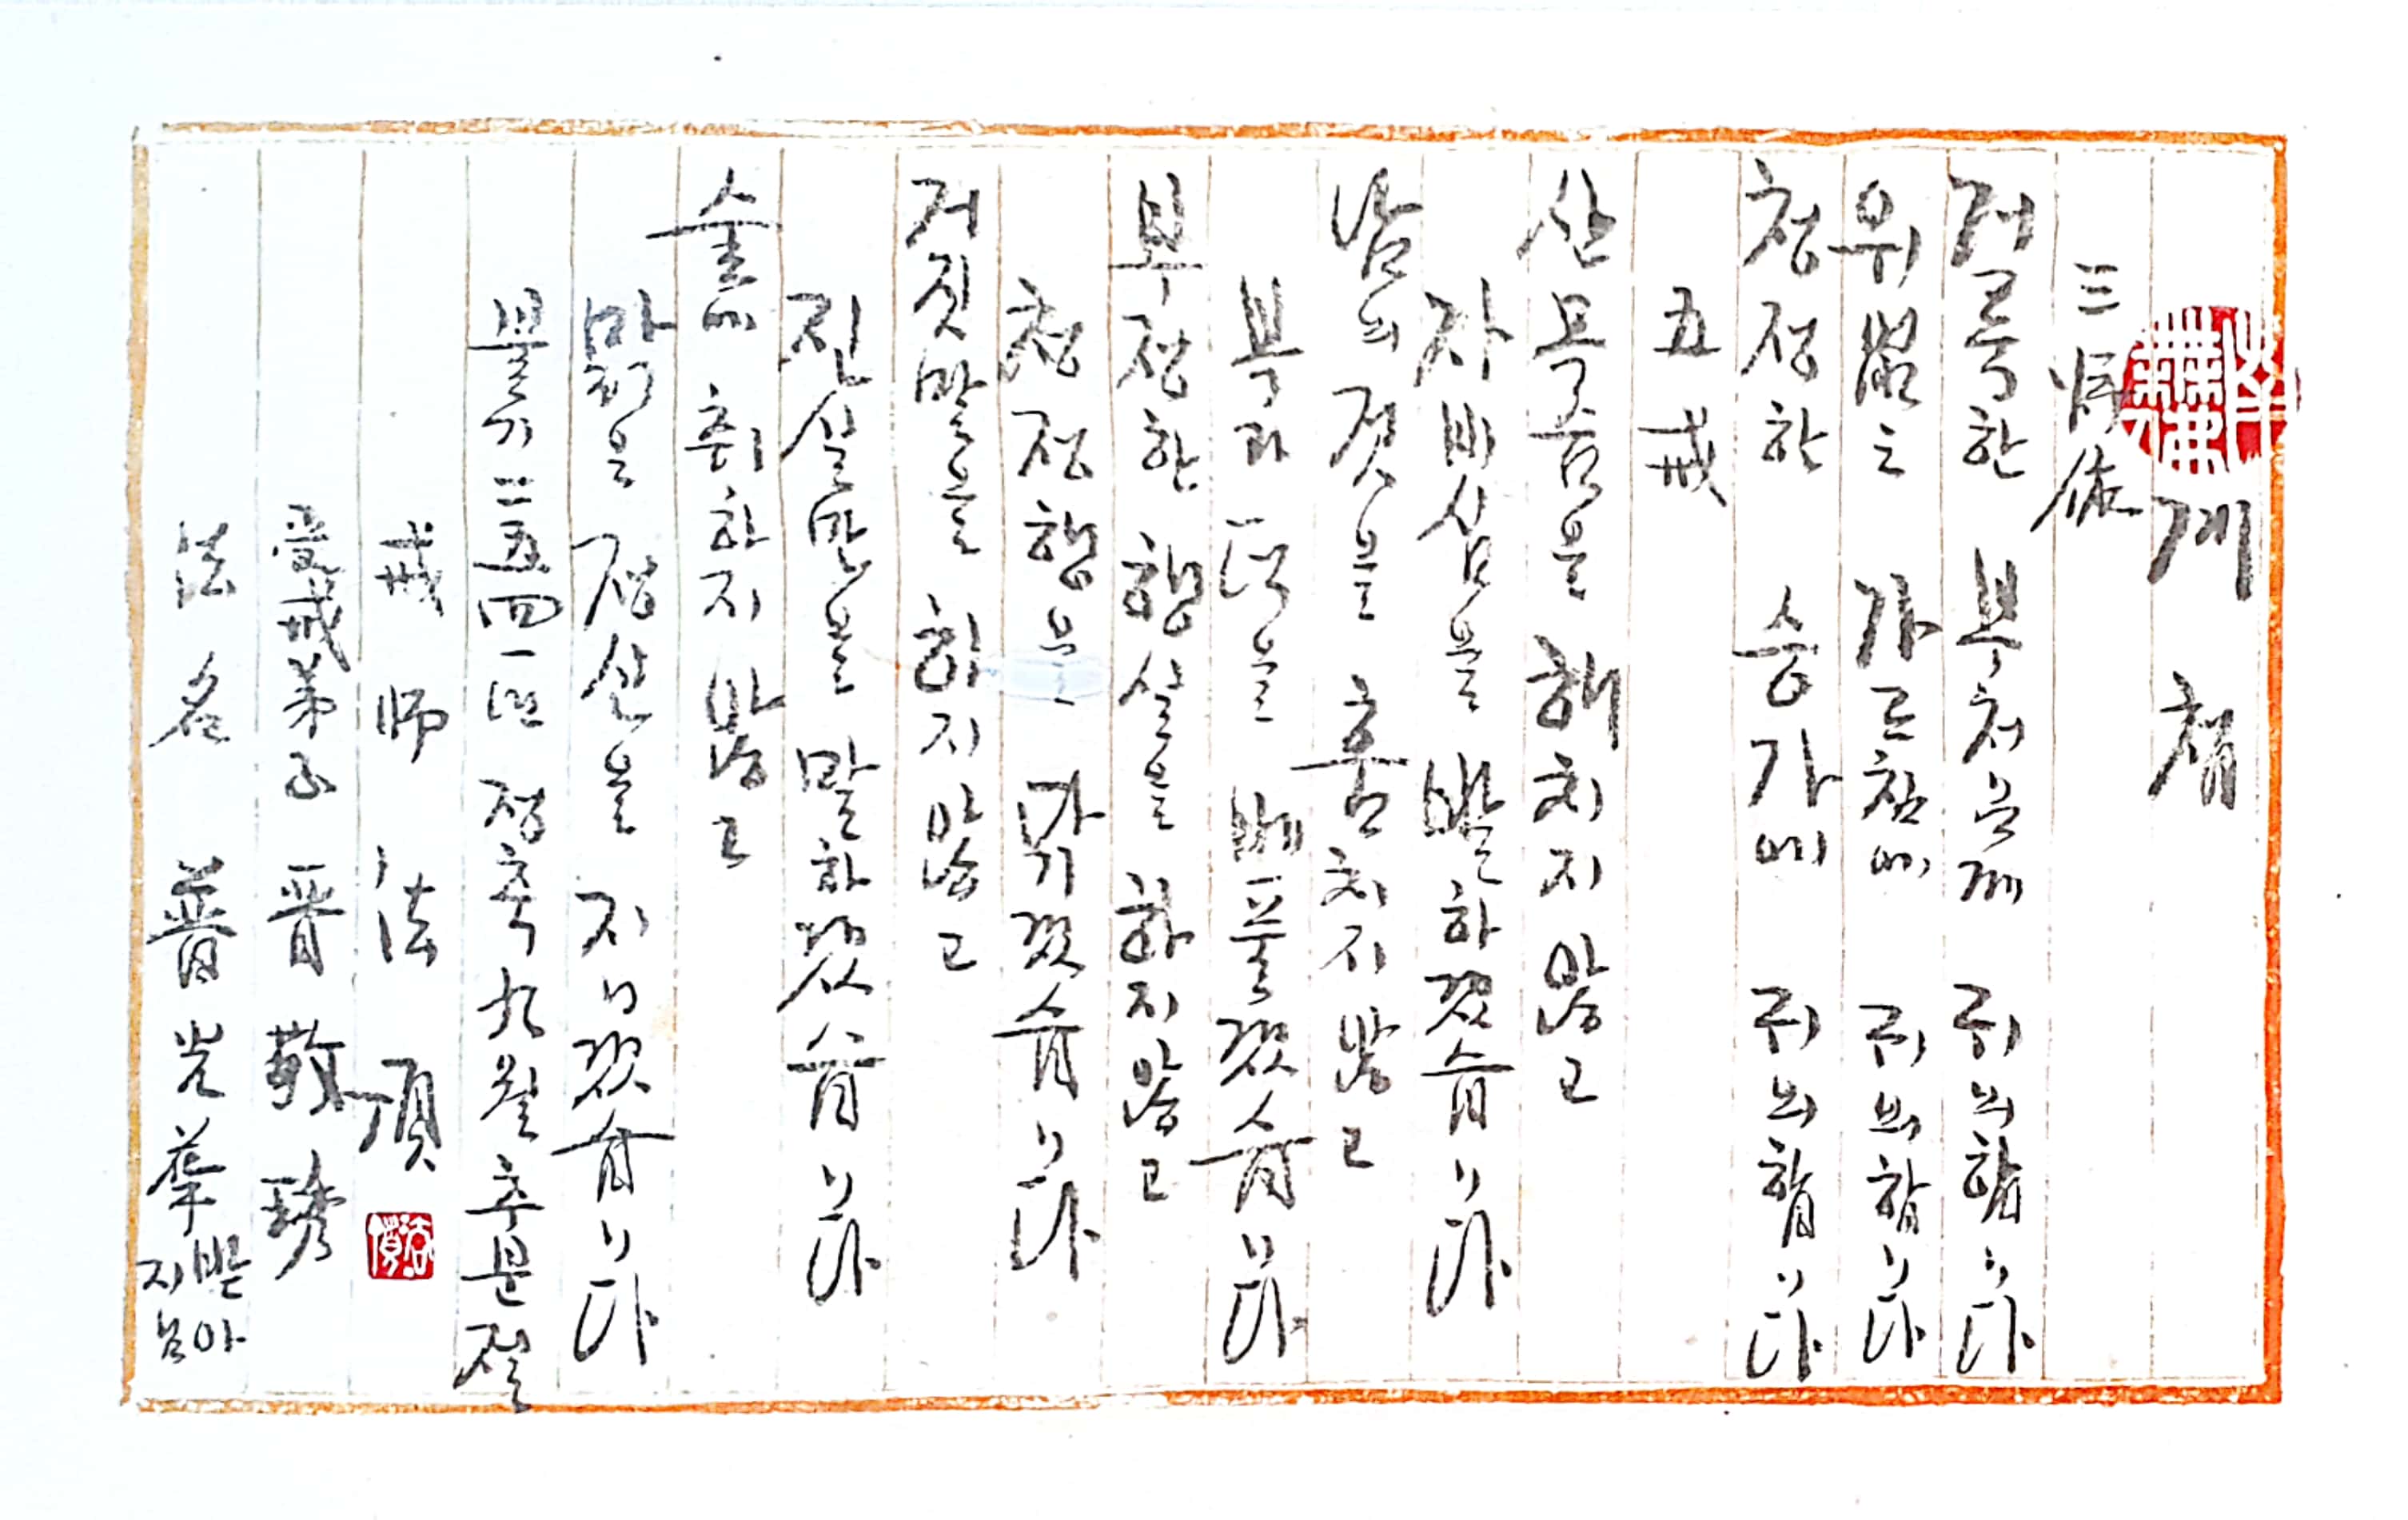 계 첩
三歸依
거룩한 부처님께 귀의합니다
위없는 가르침에 귀의합니다
청정한 승가에 귀의합니다
五戒
산목숨을 해치지 않고
자비심을 발하겠습니다
남의 것을 훔치지 않고
복과 덕을 베풀겠습니다
부정한 행실을 하지 않고
청정행을 닦겠습니다
거짓말을 하지 않고
진실만을 말하겠습니다
술에 취하지 않고
맑은 정신을 지니겠습니다
불기 二五四一년 정축 九월 추분절
戒師 法頂
受戒弟子 晋敬琇
法名 普光華 받아 지님